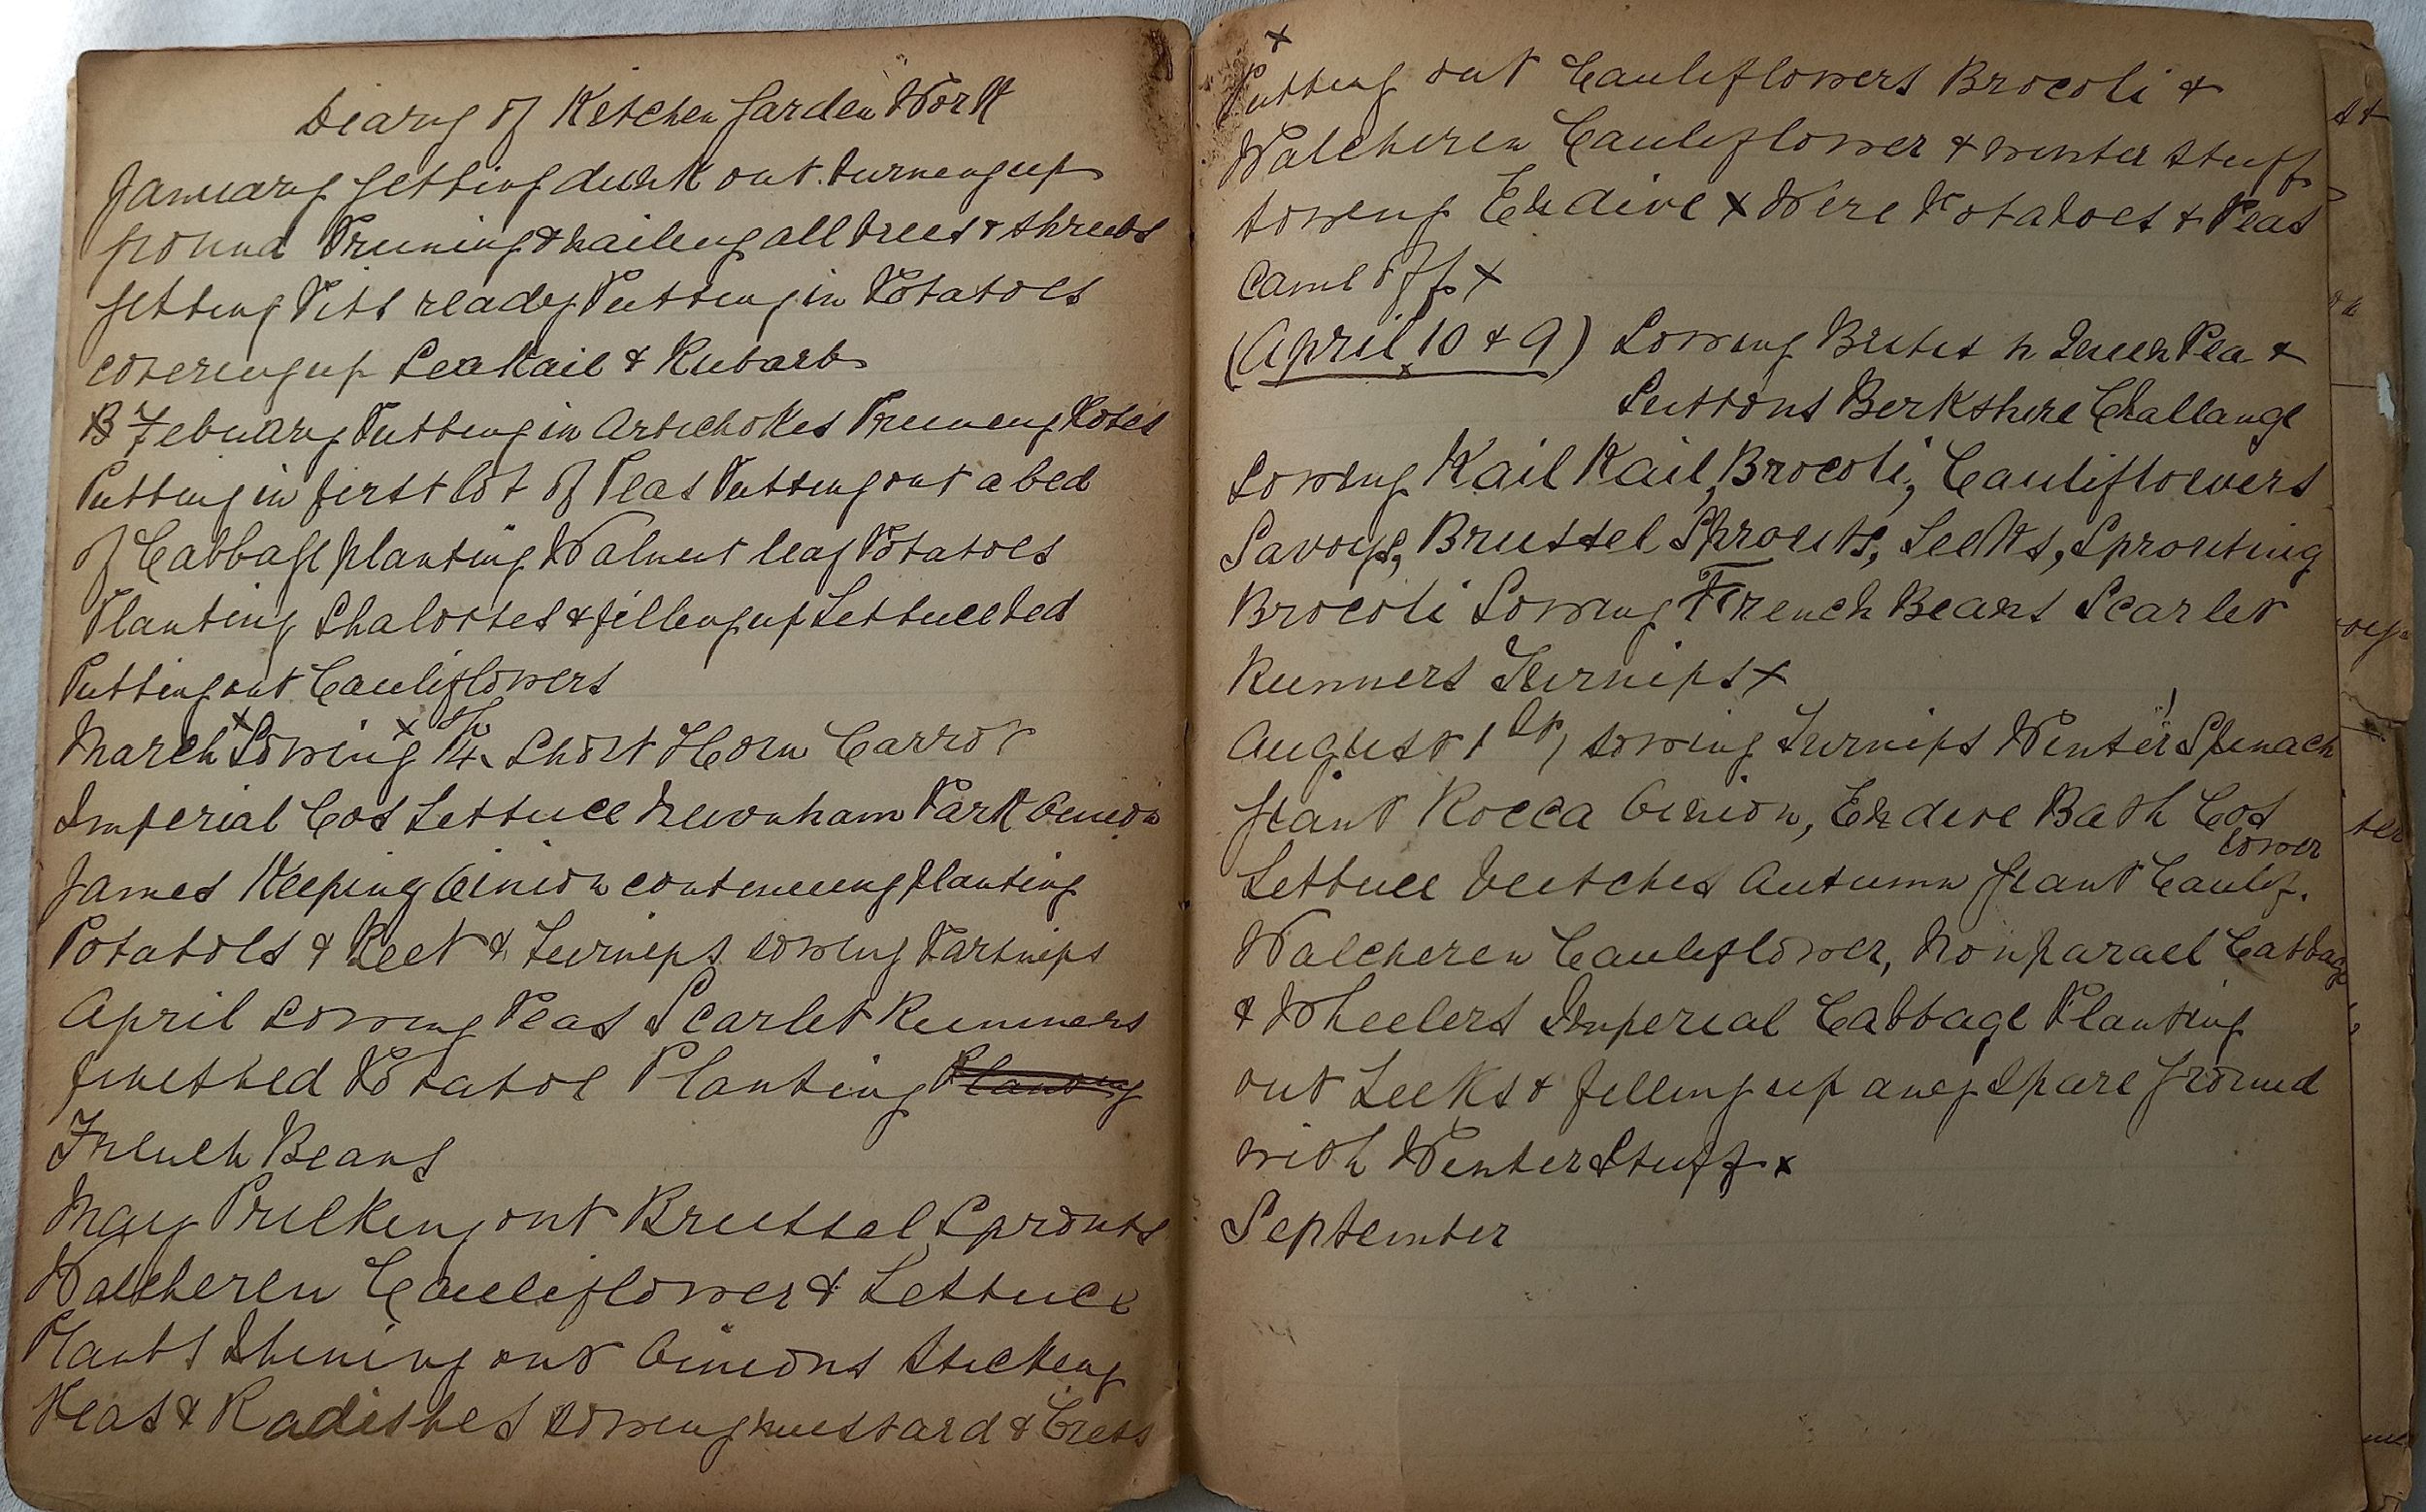 Diary of Kitchen Garden Work
January getting dunk out. turning up
ground Pruning & nailing all trees & shrubs
getting Pits ready Putting in Potatoes
covering up Sea Kail & Rubarb
B Febuary Putting in Artichokes Pruning Roses
Putting in first lot of Peas Putting out a bed
of Cabbage planting Walnut leaf Potatoes
Planting Shalottes & filling up Lettuce bed
Putting out Cauliflowers
March x Sowing x 14 th Short Horn Carrot
Imperial Cos Lettuce Newnham Park Oinion
James Keeping Oinion continueing planting
Potatoes & Beet & Turnips sowing Parsnips
April sowing Peas Scarlet Runners
finished Potatoe Planting Planting
French Beans
May Pricking out Brussel Sprouts
Walcheren Cauliflower & Lettuce
Plants Thining out Oinions Sticking
Peas & Radishes sowing mustard & Cress
x
Putting out Cauliflowers Brocoli &
Walcheren Cauliflower & winter stuff
sowing Endive x Were Potatoes & Peas
came off x
(April 10 & 9) Sowing Pea &
Suttons Berkshire Challange
Sowing Kail Kail, Brocoli, Cauliflowers
Savoys, Brussel Sprouts, Leeks, Sprouting
Brocoli Sowing French Beans Scarlet
Runners Turnips x
August 1st, sowing Turnips Winter Spinach
giant Rocca Oinion, Endive Bath Cos
Lettuce Veitches Autumn giant Caulif.
lower
Walcheren Cauliflower, Nonparael Cabbage
& Wheelers Imperial Cabbage Planting
out Leeks & filling up any spare ground
with Winter Stuff x
September